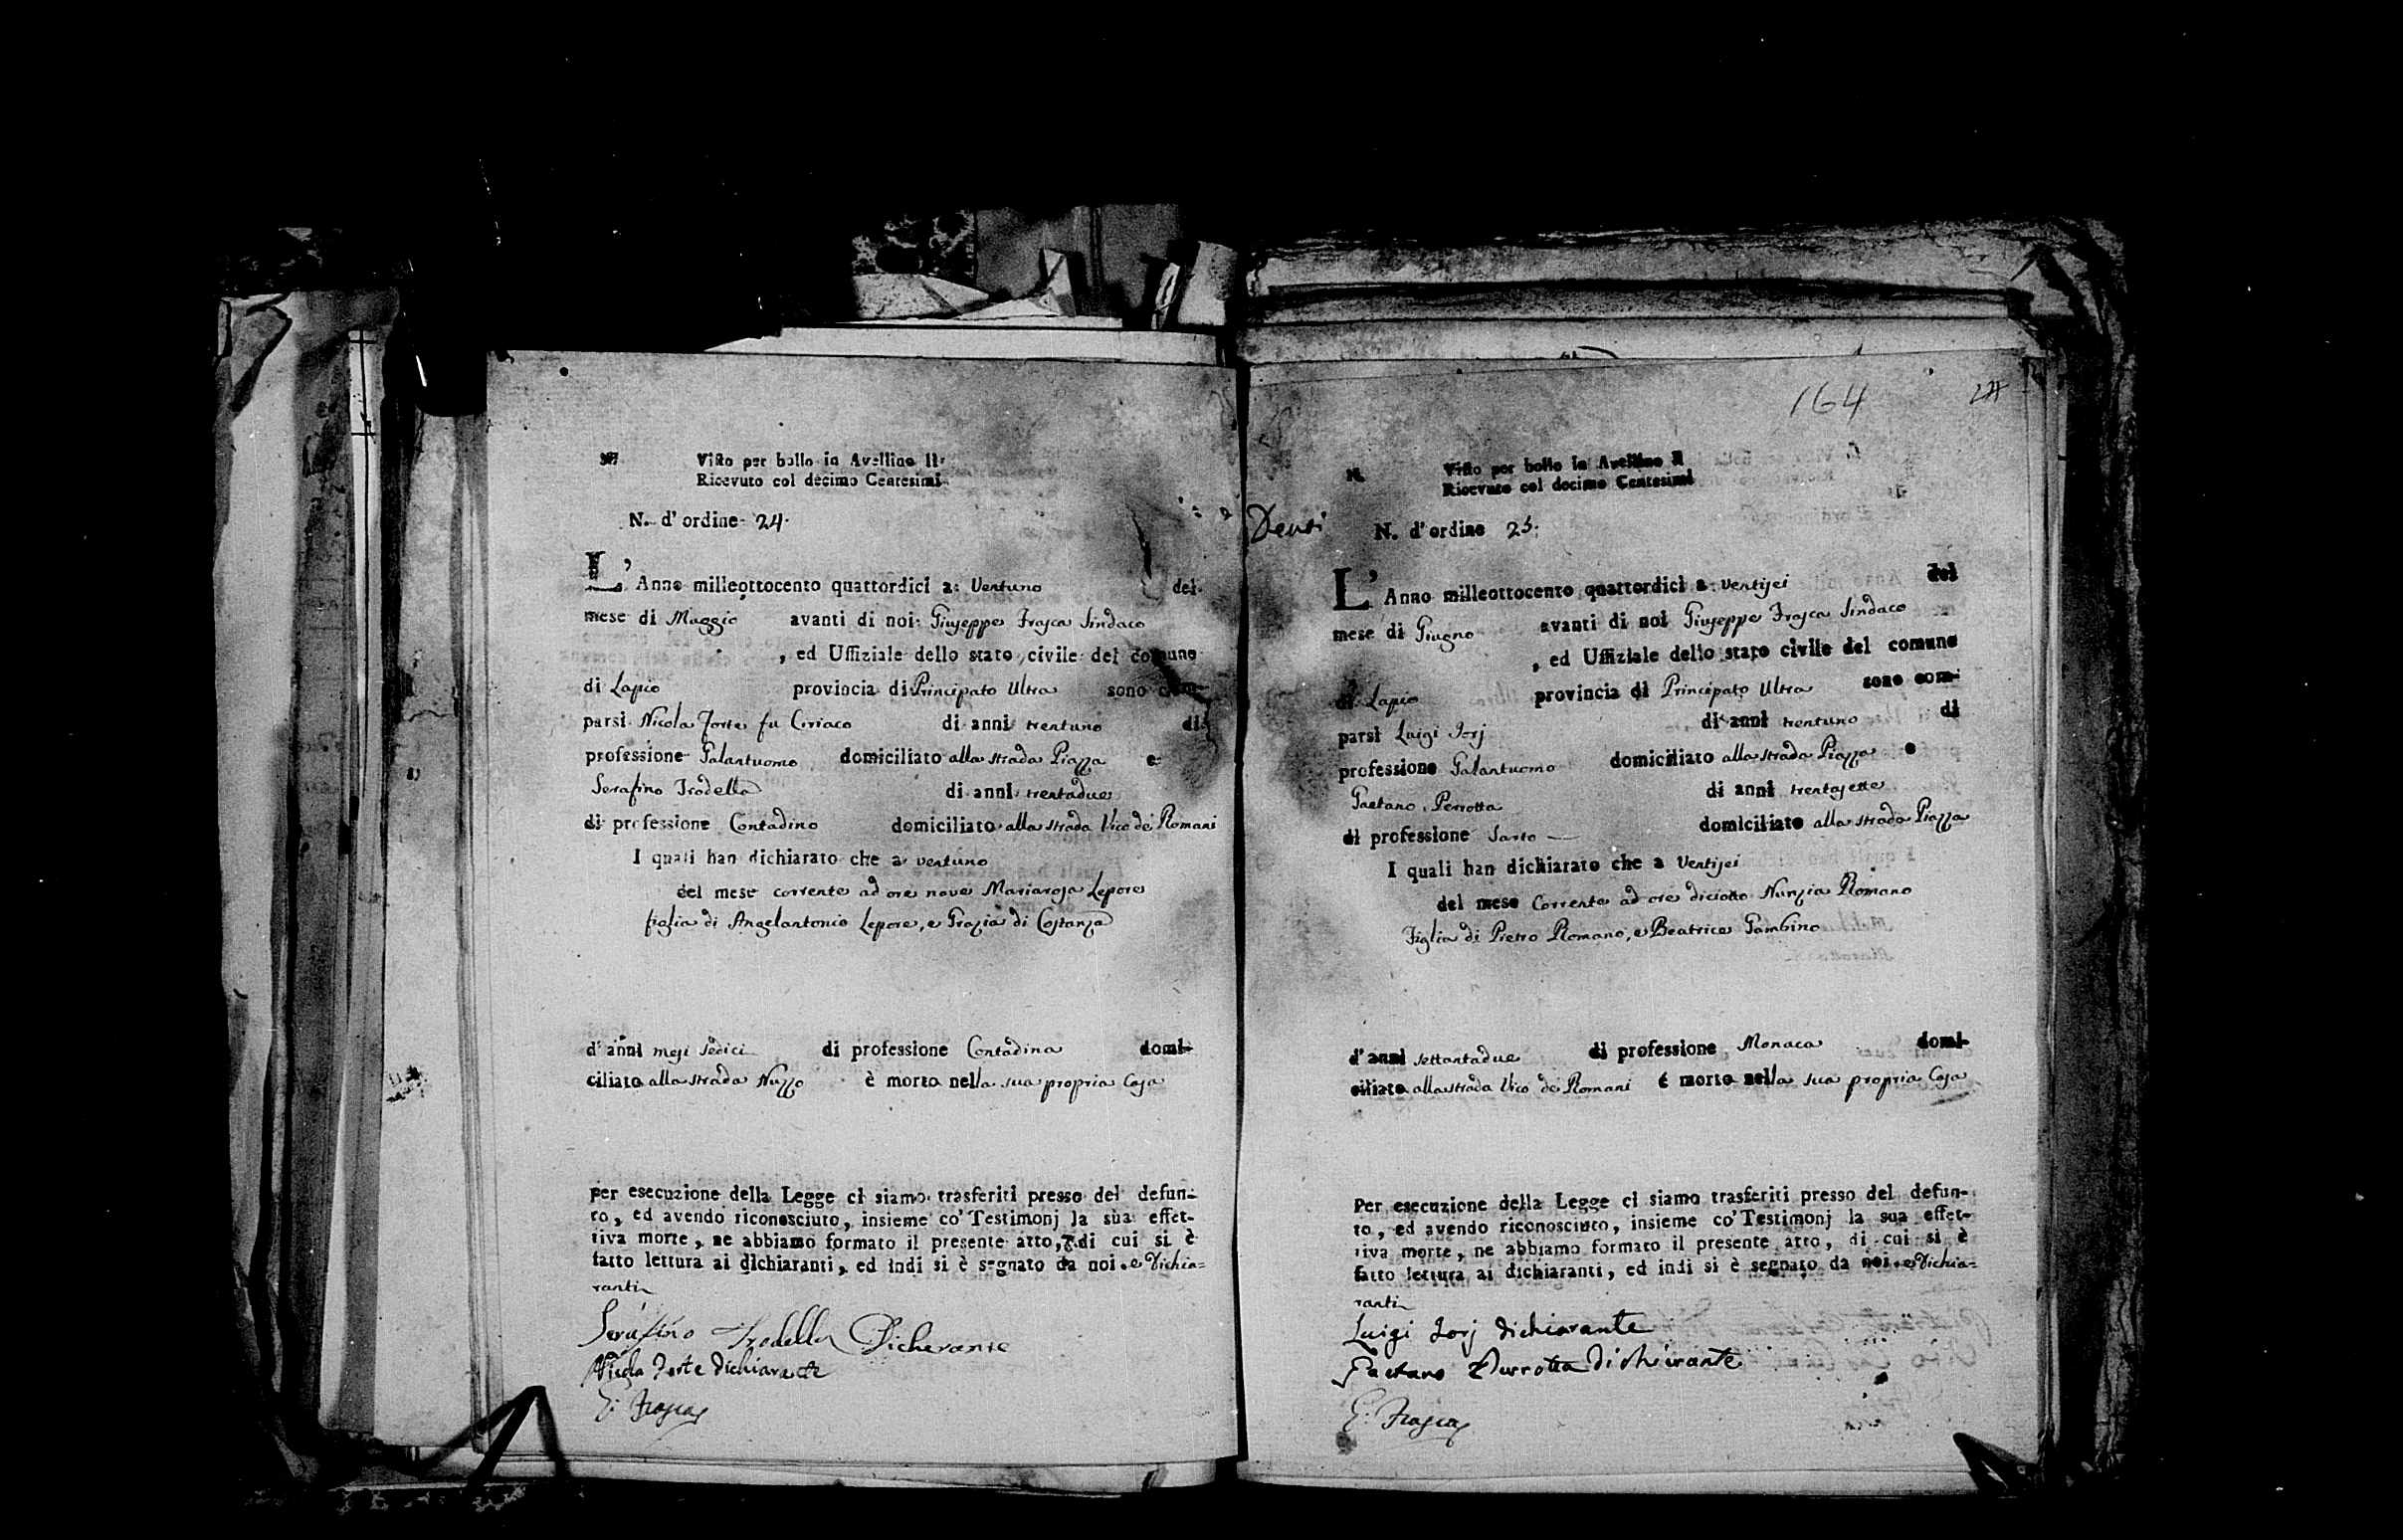 Visto per bollo in Avellino li
Ricevuto col decimo Centesimi
N. d'ordine 24.
L'Anno milleottocento quattordici a: ventuno del
mese di Maggio avanti di noi Giuseppe Frasca Sindaco
, ed Uffiziale dello stato civile del comune
di Lapio provincia di Principato Ultra sono com-
parsi Nicola Forte fu Ciriaco di anni trentuno di
professione Galantuomo domiciliato alla strada Piazza e
Serafino Trodella di anni trentadue
di professione Contadino domiciliato alla strada Vico de' Romani
I quali han dichiarato che a ventuno
del mese corrente ad ore nove Mariarosa Lepore
figlia di Angelantonio Lepore, e Grazia di Costanza
d'anni mesi sedici di professione Contadina domi-
ciliato alla strada Nuzzo è morto nella sua propria Casa
per esecuzione della Legge ci siamo trasferiti presso del defun-
to, ed avendo riconosciuto, insieme co' Testimonj la sua effet-
tiva morte, ne abbiamo formato il presente atto, di cui si è
fatto lettura ai dichiaranti, ed indi si è segnato da noi, e dichia=
ranti
Serafino Trodella Dicherante
Nicola Forte dichiarante
G. Frasca
164
Visto per bollo in Avellino li
Ricevuto col decimo Centesimi
N. d'ordine 25.
L'Anno milleottocento quattordici a: ventisei del
mese di Giugno avanti di noi Giuseppe Frasca Sindaco
, ed Uffiziale dello stato civile del comune
di Lapio provincia di Principato Ultra sono com-
parsi Luigi Jorj di anni trentuno di
professione Galantuomo domiciliato alla strada Piazza e
Gaetano Perrotta di anni trentasette
di professione Sarto domiciliato alla strada Piazza
I quali han dichiarato che a ventisei
del mese Corrente ad ore diciotto Nunzia Romano
Figlia di Pietro Romano, e Beatrice Gambino
d'anni settantadue di professione Monaca domi-
ciliato alla strada Vico de' Romani è morto nella sua propria Casa
Per esecuzione della Legge ci siamo trasferiti presso del defun-
to, ed avendo riconosciuto, insieme co' Testimonj la sua effet-
tiva morte, ne abbiamo formato il presente atto, di cui si è
fatto lettura ai dichiaranti, ed indi si è segnato da noi, e dichia=
ranti
Luigi Jorj dichiarante
Gaetano Perrotta dichirante
G. Frasca